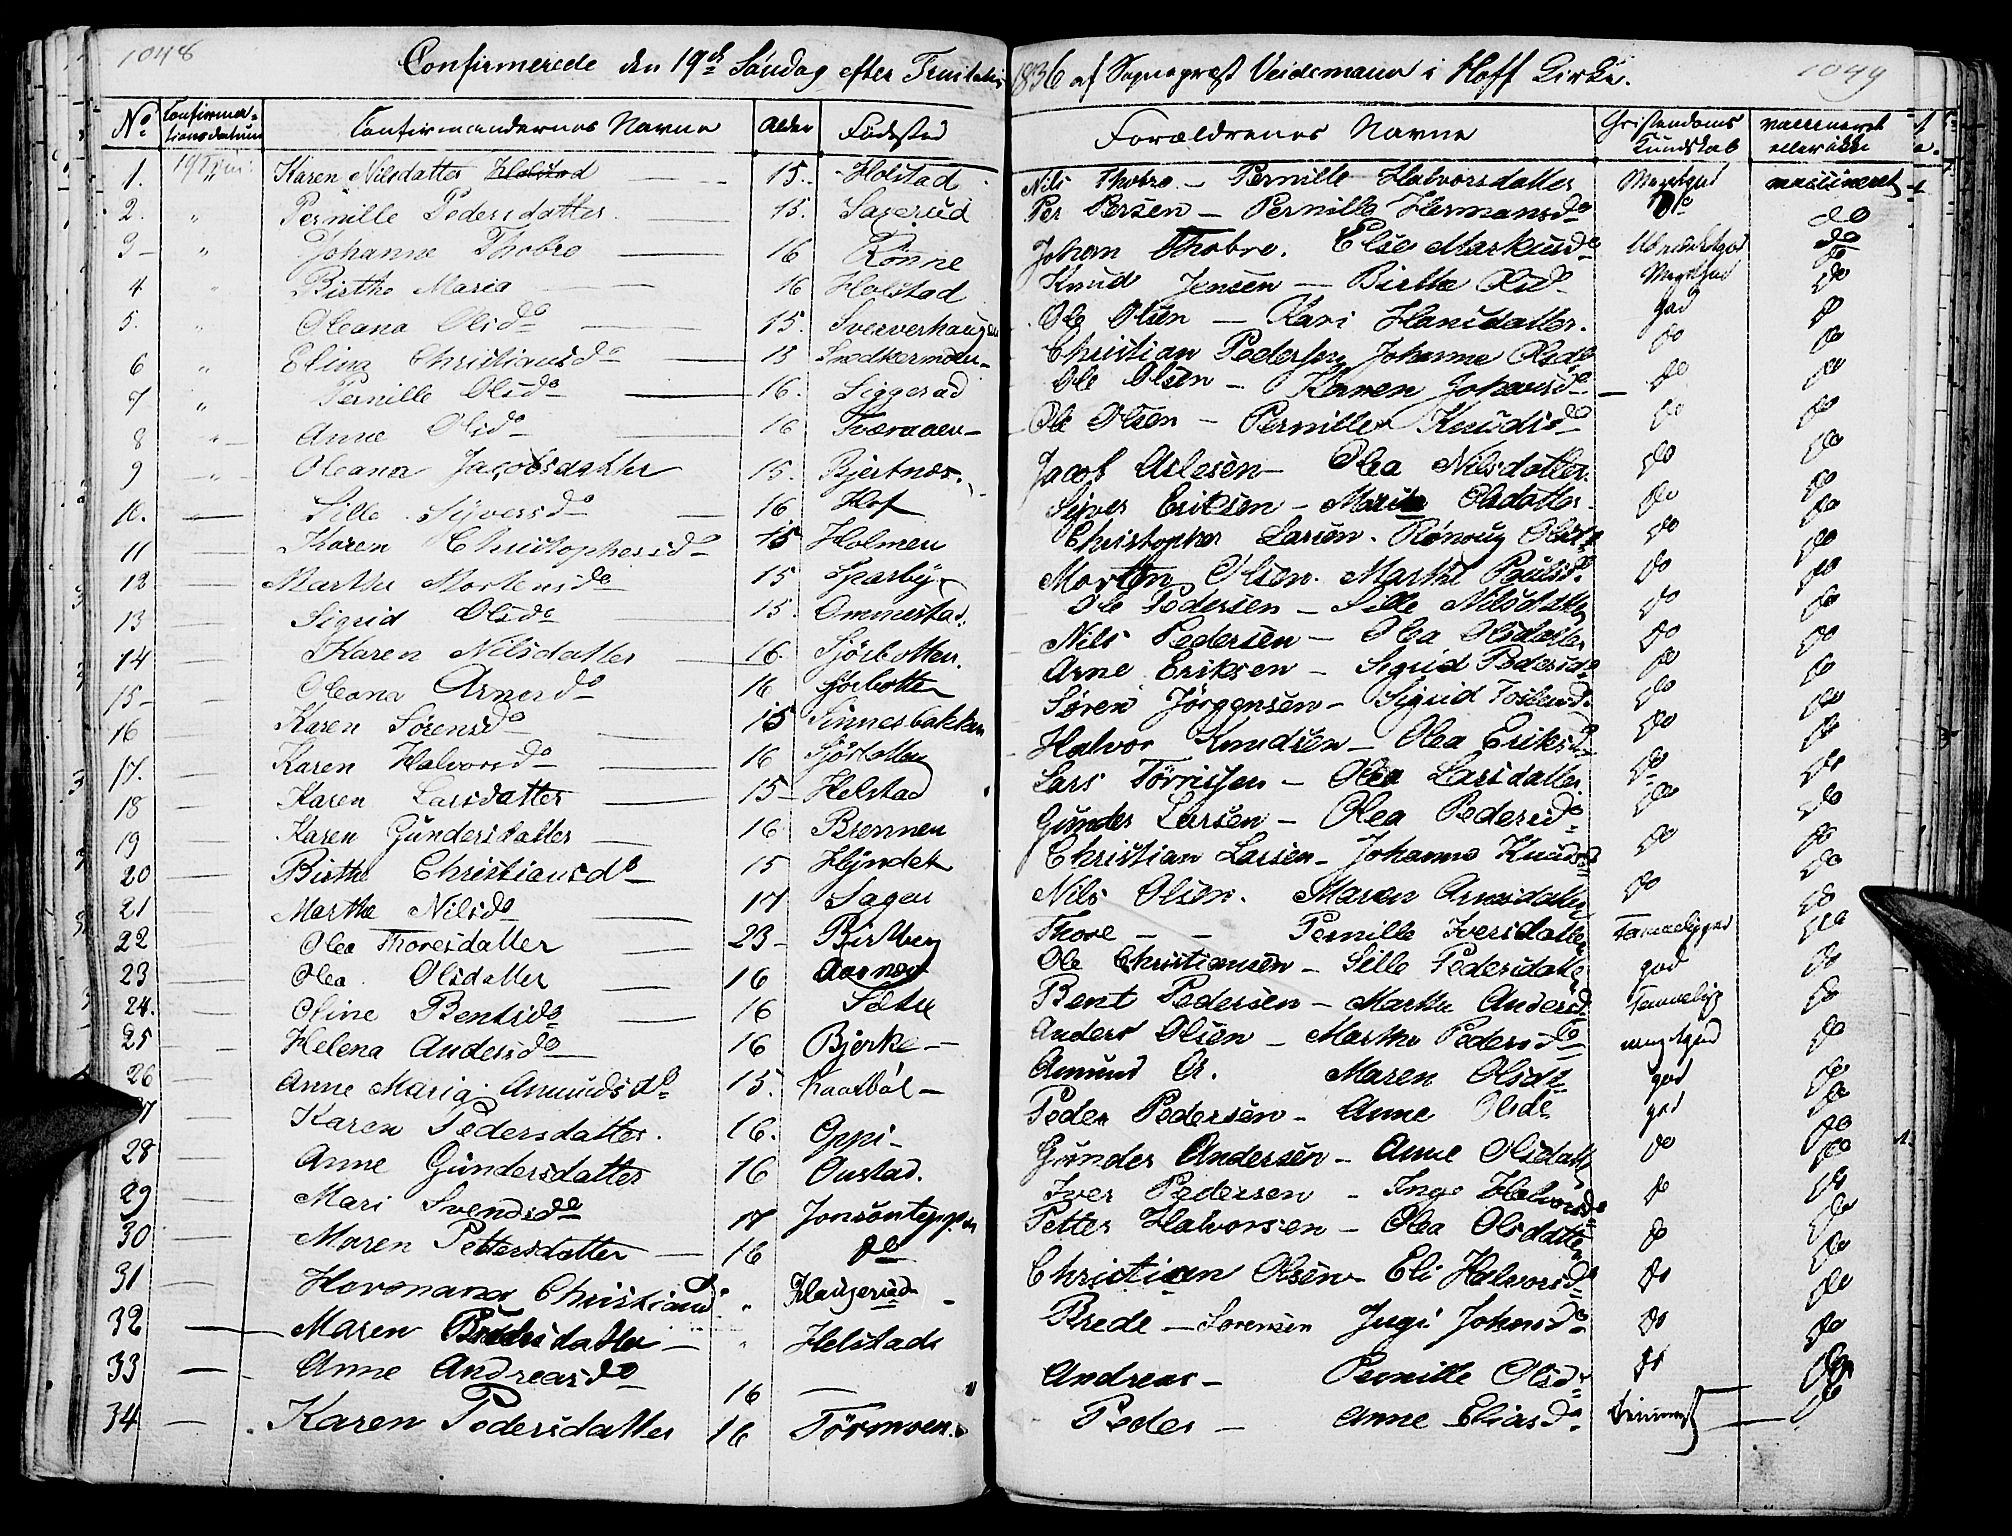 1048
Confirmerede den 19de Søndag efter Trinitatis 1836 af Sognepræst Veidemann i Hoff Kirke.
1049
No. Confirmationsdatum Confirmandernes Navne Alder Fødested Forældrenes Navne Christendoms Kundskab vaccineret eller ikke
1. Karen Nilsdatter Holstad 15. Holstad Nils Thobro - Pernille Halvorsdatter Megetgod vaccineret
2. " Pernille Pedersdatter. 15. Per Persen - Pernille Hermansdo do do
3 - " Johanne Thobro 16 Rønne Johan Thobro. Else do
4 " Birthe Maria 16 Holstad Knud Jensen - Birthe Olsd Megetgod do
5. " Oleana Olsdo 15. Ole Olsen - Kari Hansdatter. god do
6 " Elina Christiansdo 15 Christian Pedersen Johanne Olsdo do do
7 " Pernille Olsdo 16. Siggerud Ole Olsen - Karen Johansdo do do
8 " Anne Olsdo 16 Ole Olsen - Pernille Knudsdo do do
9 " Oleana Jacobsdatter 15. Bjertnæs. Jacob Aslesen - Olea Nilsdatter. do do
10. — Sille Syversdo 16 Hof Syver Eriksen - Olsdatter do do
11 Karen Christophersdo 15 Holmen Christopher Larsen. Rønnoug Olsdo do do
12 — Marthe Mortensdo 15 Sparby Morten Olsen. Marthe Paulsdo do do
13 — Sigrid Olsdo 15. Ommestad. Ole Pedersen - Sille Nilsdatter do do
14 — Karen Nilsdatter 16. Sjørbotten. Nils Pedersen - Olea Olsdatter do do
15 - — Oleana Arnesdo 16 Sjørbotten Arne Eriksen - Sigrid Pedersdo do do
16 — Karen Sørensdo 15 Finnesbakken Søren Jørgensen - Sigrid do do
17. — Karen Halvorsdo 16 Sjørbotten Halvor Knudsen - Olea Eriksdo do do
18 — Karen Larsdatter 15 - Helstad Lars Tørrissen - Olea Larsdatter do do
19 — Karen Gundersdatter 16 Brennen Gunder Larsen - Olea Pedersdo do do
20 — Birthe Christiansdo 15 Christian Larsen - Johanne Knudsd do do
21 — Marthe Nilsdo 17 Sagen Nils Olsen. Maren Arnesdatter do do
22 — Olea Thoresdatter 23 - Birkberg Thore - - Pernille Iversdatter Temmeliggod do
23 — Olea Olsdatter 16 Ole Christiansen - Sille Pedersdatter god do
24. — Oline Bentsdo 16 Sætre Bent Pedersen - Marthe Andersd Temmelig do
25 — Helena Andersdo 16 Bjerke - Anders Olsen - Marthe Pedersdo megetgod do
26 — Anne Maria Amundsdo 15. Kaatbøl - Amund A. Maren Olsdo god do
27 — Karen Pedersdatter. 16. Oppi - Peder Pedersen - Anne Olsdo god do
28 — Anne Gundersdatter 16 Oustad. Gunder Andersen - Anne Olsdatter do do
29 — Mari Svendsdo 17 Iver Pedersen - Inge Halvorsdo do do
30 — Maren Pettersdatter 16 do Petter Halvorsen - Olea Olsdatter do do
31 — Hermana Christiansd " Haugerud Christian Olsen - Eli Halvorsdo do do
32 — Maren Bredesdatter " Helstad Brede - Sorensen Jngi Johnsdo do do
33 — Anne Andreasdo 16 — Andreas - Pernille Olsdo do do
34 — Karen Pedersdatter 16 Tørmoen. Peder - Anne Eliasdo do